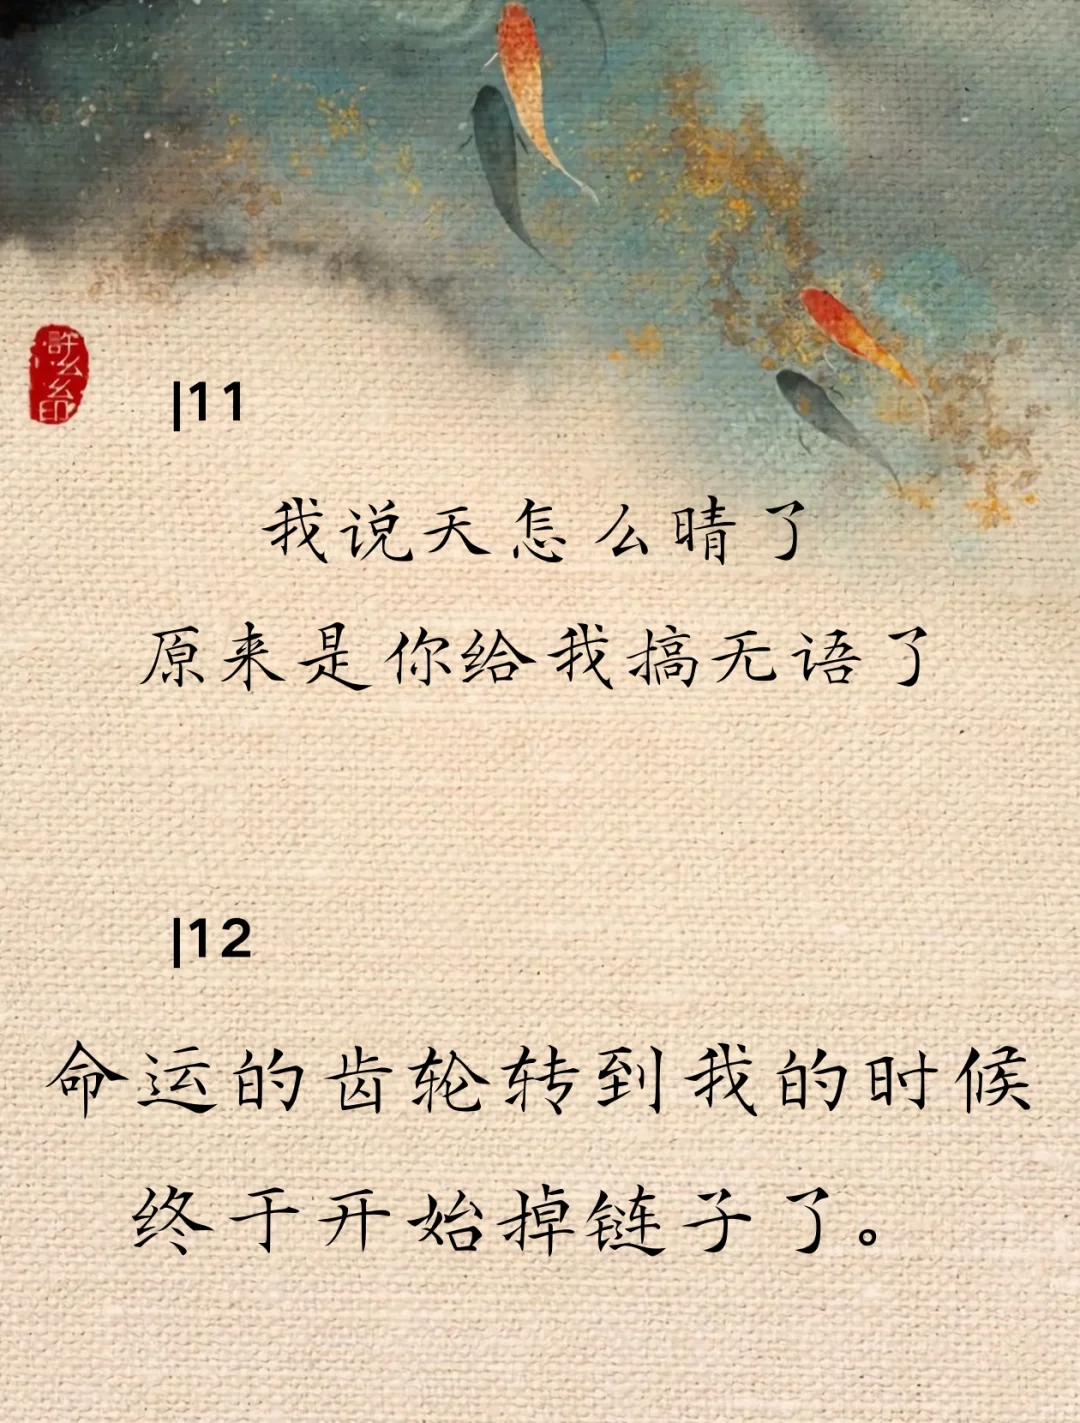 許么么印
|11
我说天怎么晴了
原来是你给我搞无语了
|12
命运的齿轮转到我的时候
终于开始掉链子了。